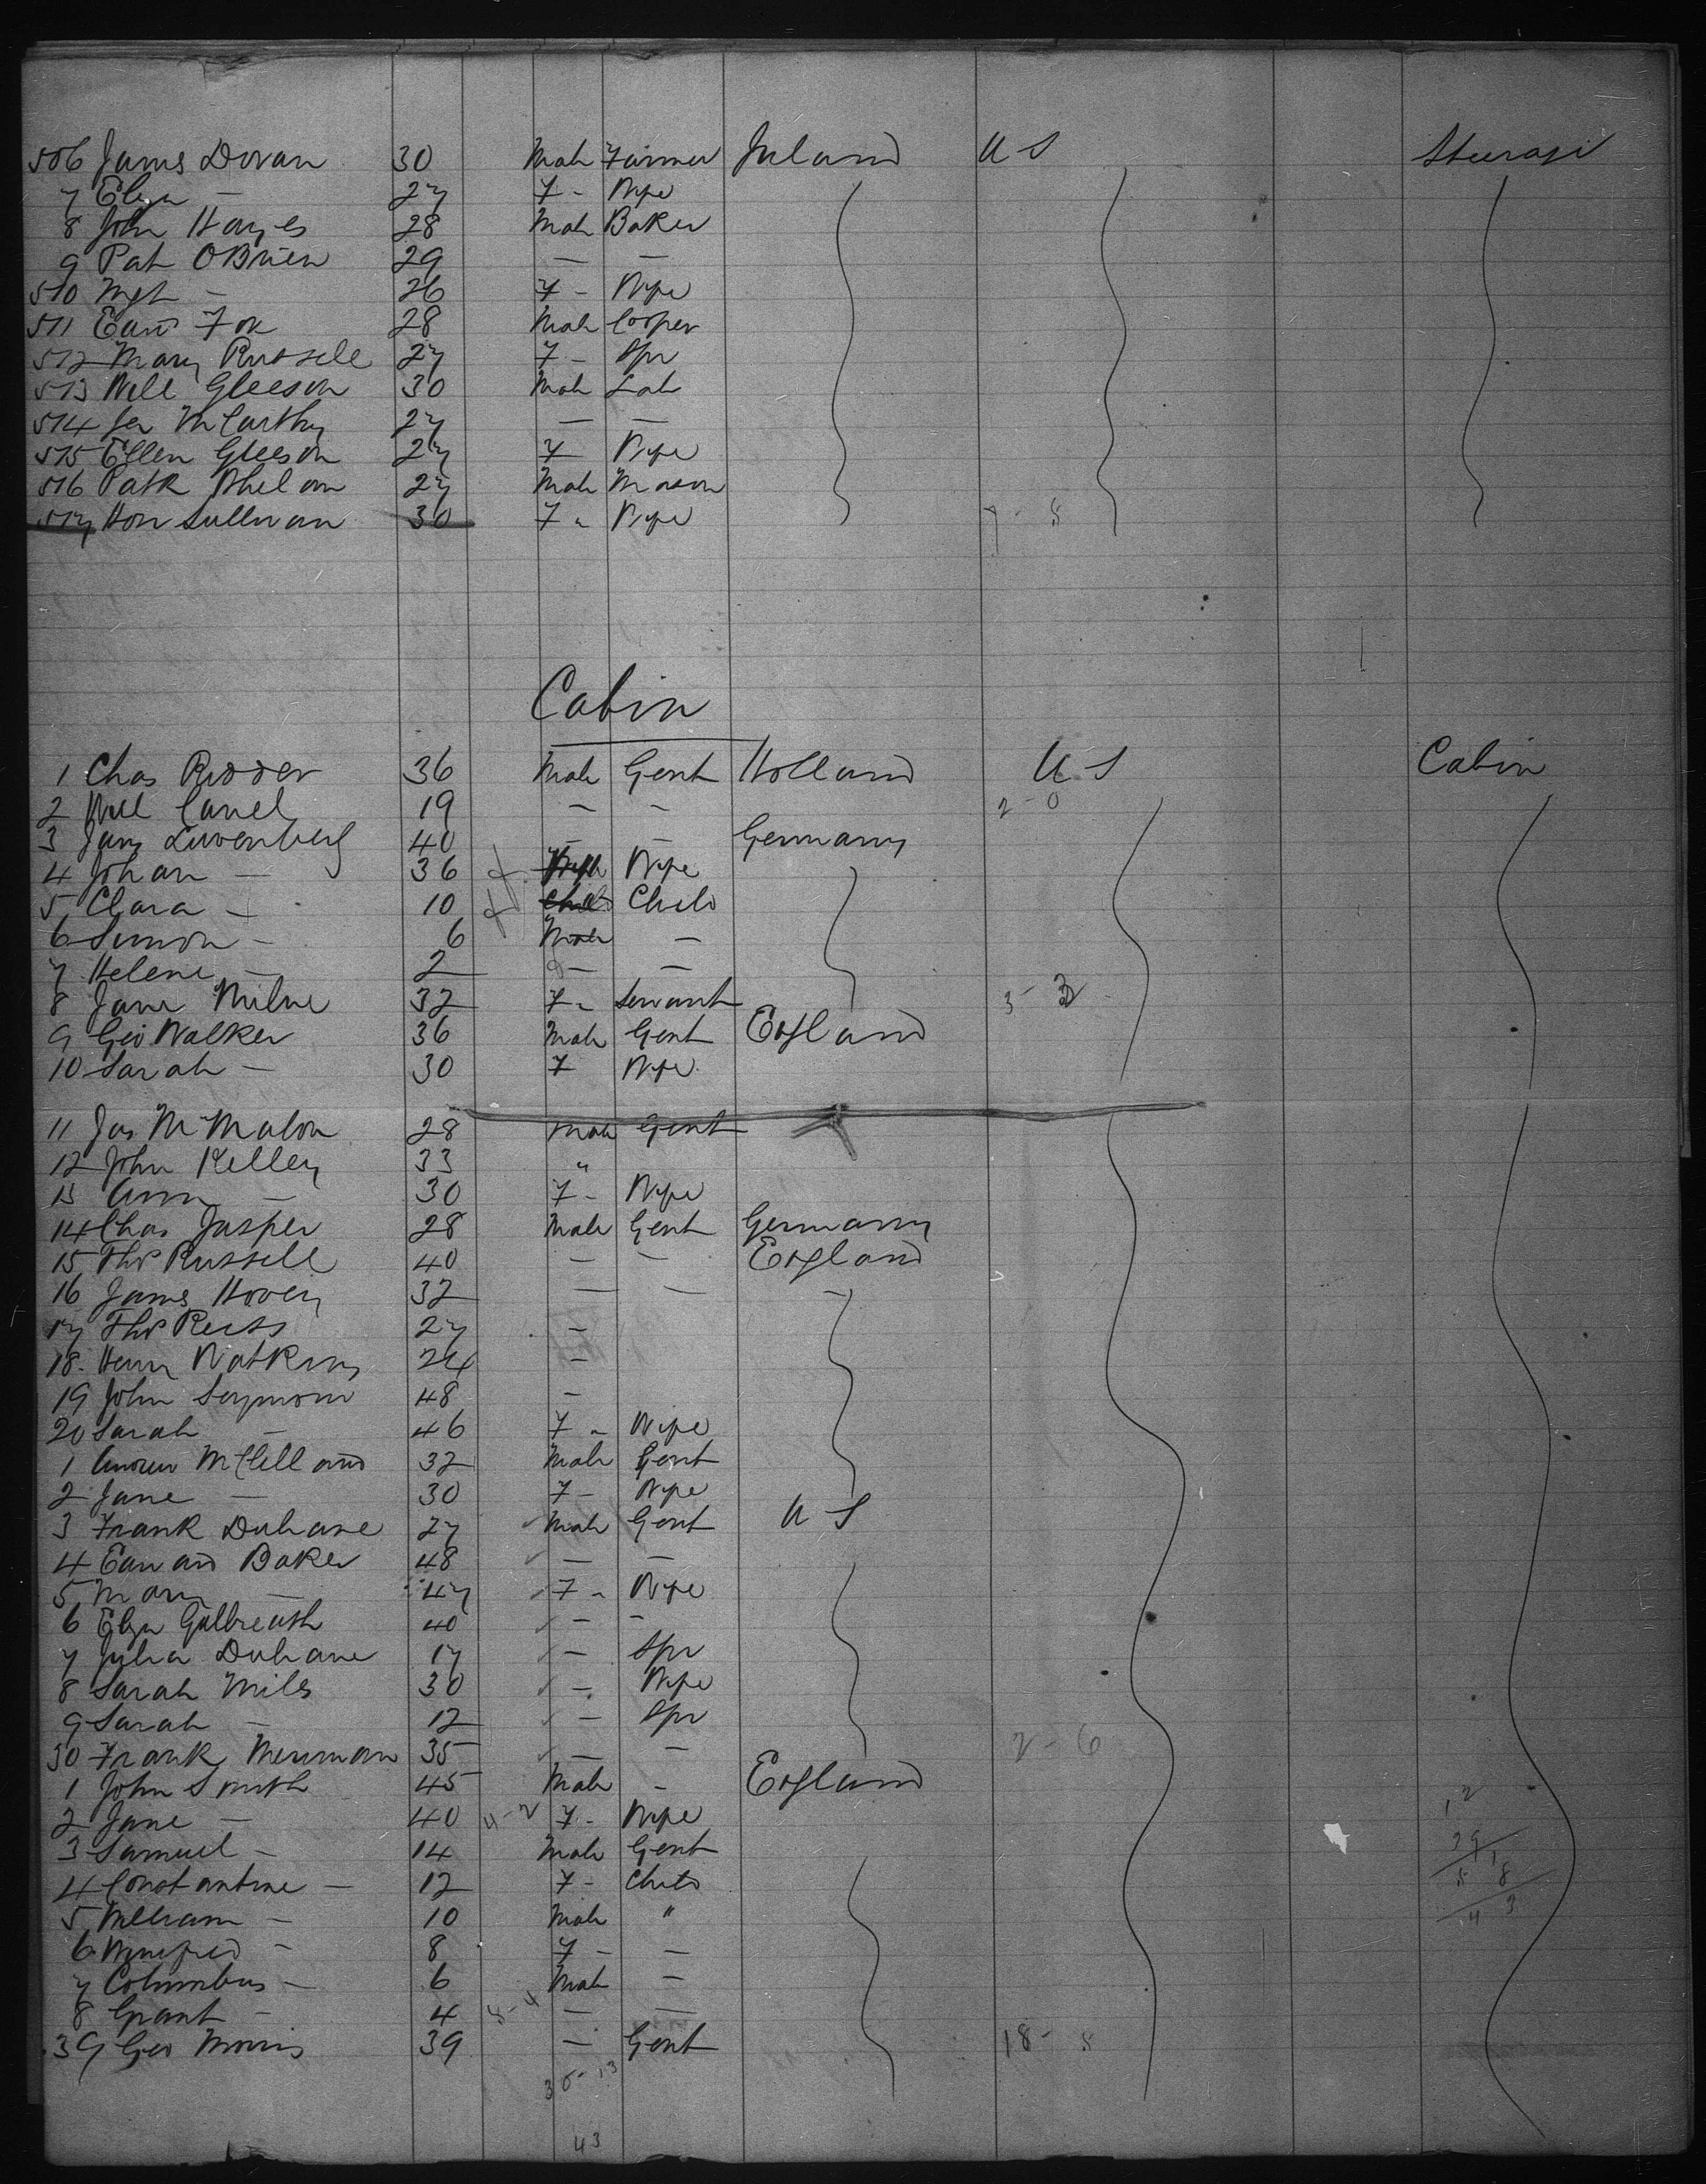 506 James Doran 30 Male Farmer Ireland U S Steerage
7 Eliza — 27 F - Wife
8 John Hayes 28 Male Baker
9 Pat O Brien 29 — —
510 Mgt — 26 F - Wife
511 Edwd Fox 28 Male Cooper
512 Mary Russell 27 F - Spr
513 Will Gleeson 30 Male Lab
514 Jer McCarthy 27 — —
515 Ellen Gleeson 27 F Wife
516 Patk Whelan 27 Male Mason
517 Hon Sullivan 30 F - Wife 7 - 5
Cabin
1 Chas Ridder 36 Male Gent Holland U S Cabin
2 Will 19 — — 2 - 0
3 40 — — Germany
4 Johan — 36 F Wife
5 Clara — 10 Child
6 Simon — 6 Male —
7 Helene — 2 — —
8 Jane Milne 32 F - Servant 3 -
9 Geo Walker 36 Male Gent England
10 Sarah — 30 F Wife
11 Jas McMahon 28 Male Gent
12 John Kelley 33 "
13 Ann — 30 F - Wife
14 Chas Jasper 28 Male Gent Germany
15 Thos Russell 40 — — England
16 James Hovey 32 — — —
17 Thos Reiss 27 —
18 Henry Watkins 24 —
19 John Seymour 48 —
20 Sarah — 46 F - Wife
1 Andrew McClelland 32 Male Gent
2 Jane — 30 F - Wife
3 Frank Duhane 27 Male Gent U S
4 Edward Baker 48 — —
5 Mary — 47 F - Wife
6 Eliza Galbreath 40 — —
7 Julia Duhane 17 — Spr
8 Sarah Miles 30 — Wife
9 Sarah — 12 — Spr
30 Frank Merriman 35 — — 2 - 6
1 John Smith 45 Male — England
2 Jane — 40 4-2 F - Wife
3 Samuel — 14 Male Gent
4 Constantine — 12 F - Child
5 William — 10 Male "
6 Winifred — 8 F — —
7 Columbus — 6 Male —
8 Grant — 4 — —
39 Geo Morris 39 — Gent 18 - 5
43